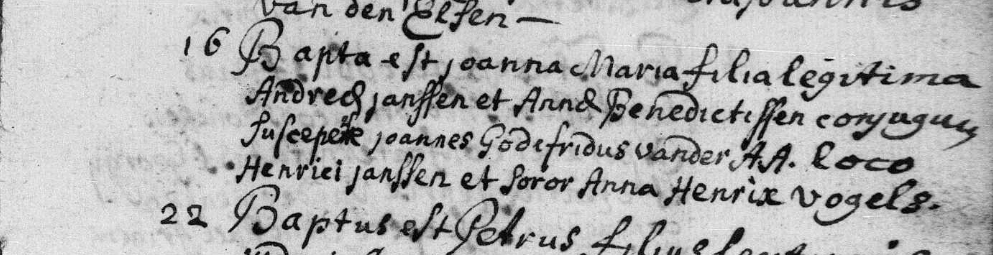 van den Elsen —
Joannis
16 Bapta est joanna Maria filia legitima
Andreæ janssen et Annæ Benedictissen conjugum
Suscepere joannes Godefridus vander AA. loco
Henrici janssen et soror Anna Henrix vogels.
22 Baptus est Petrus filius